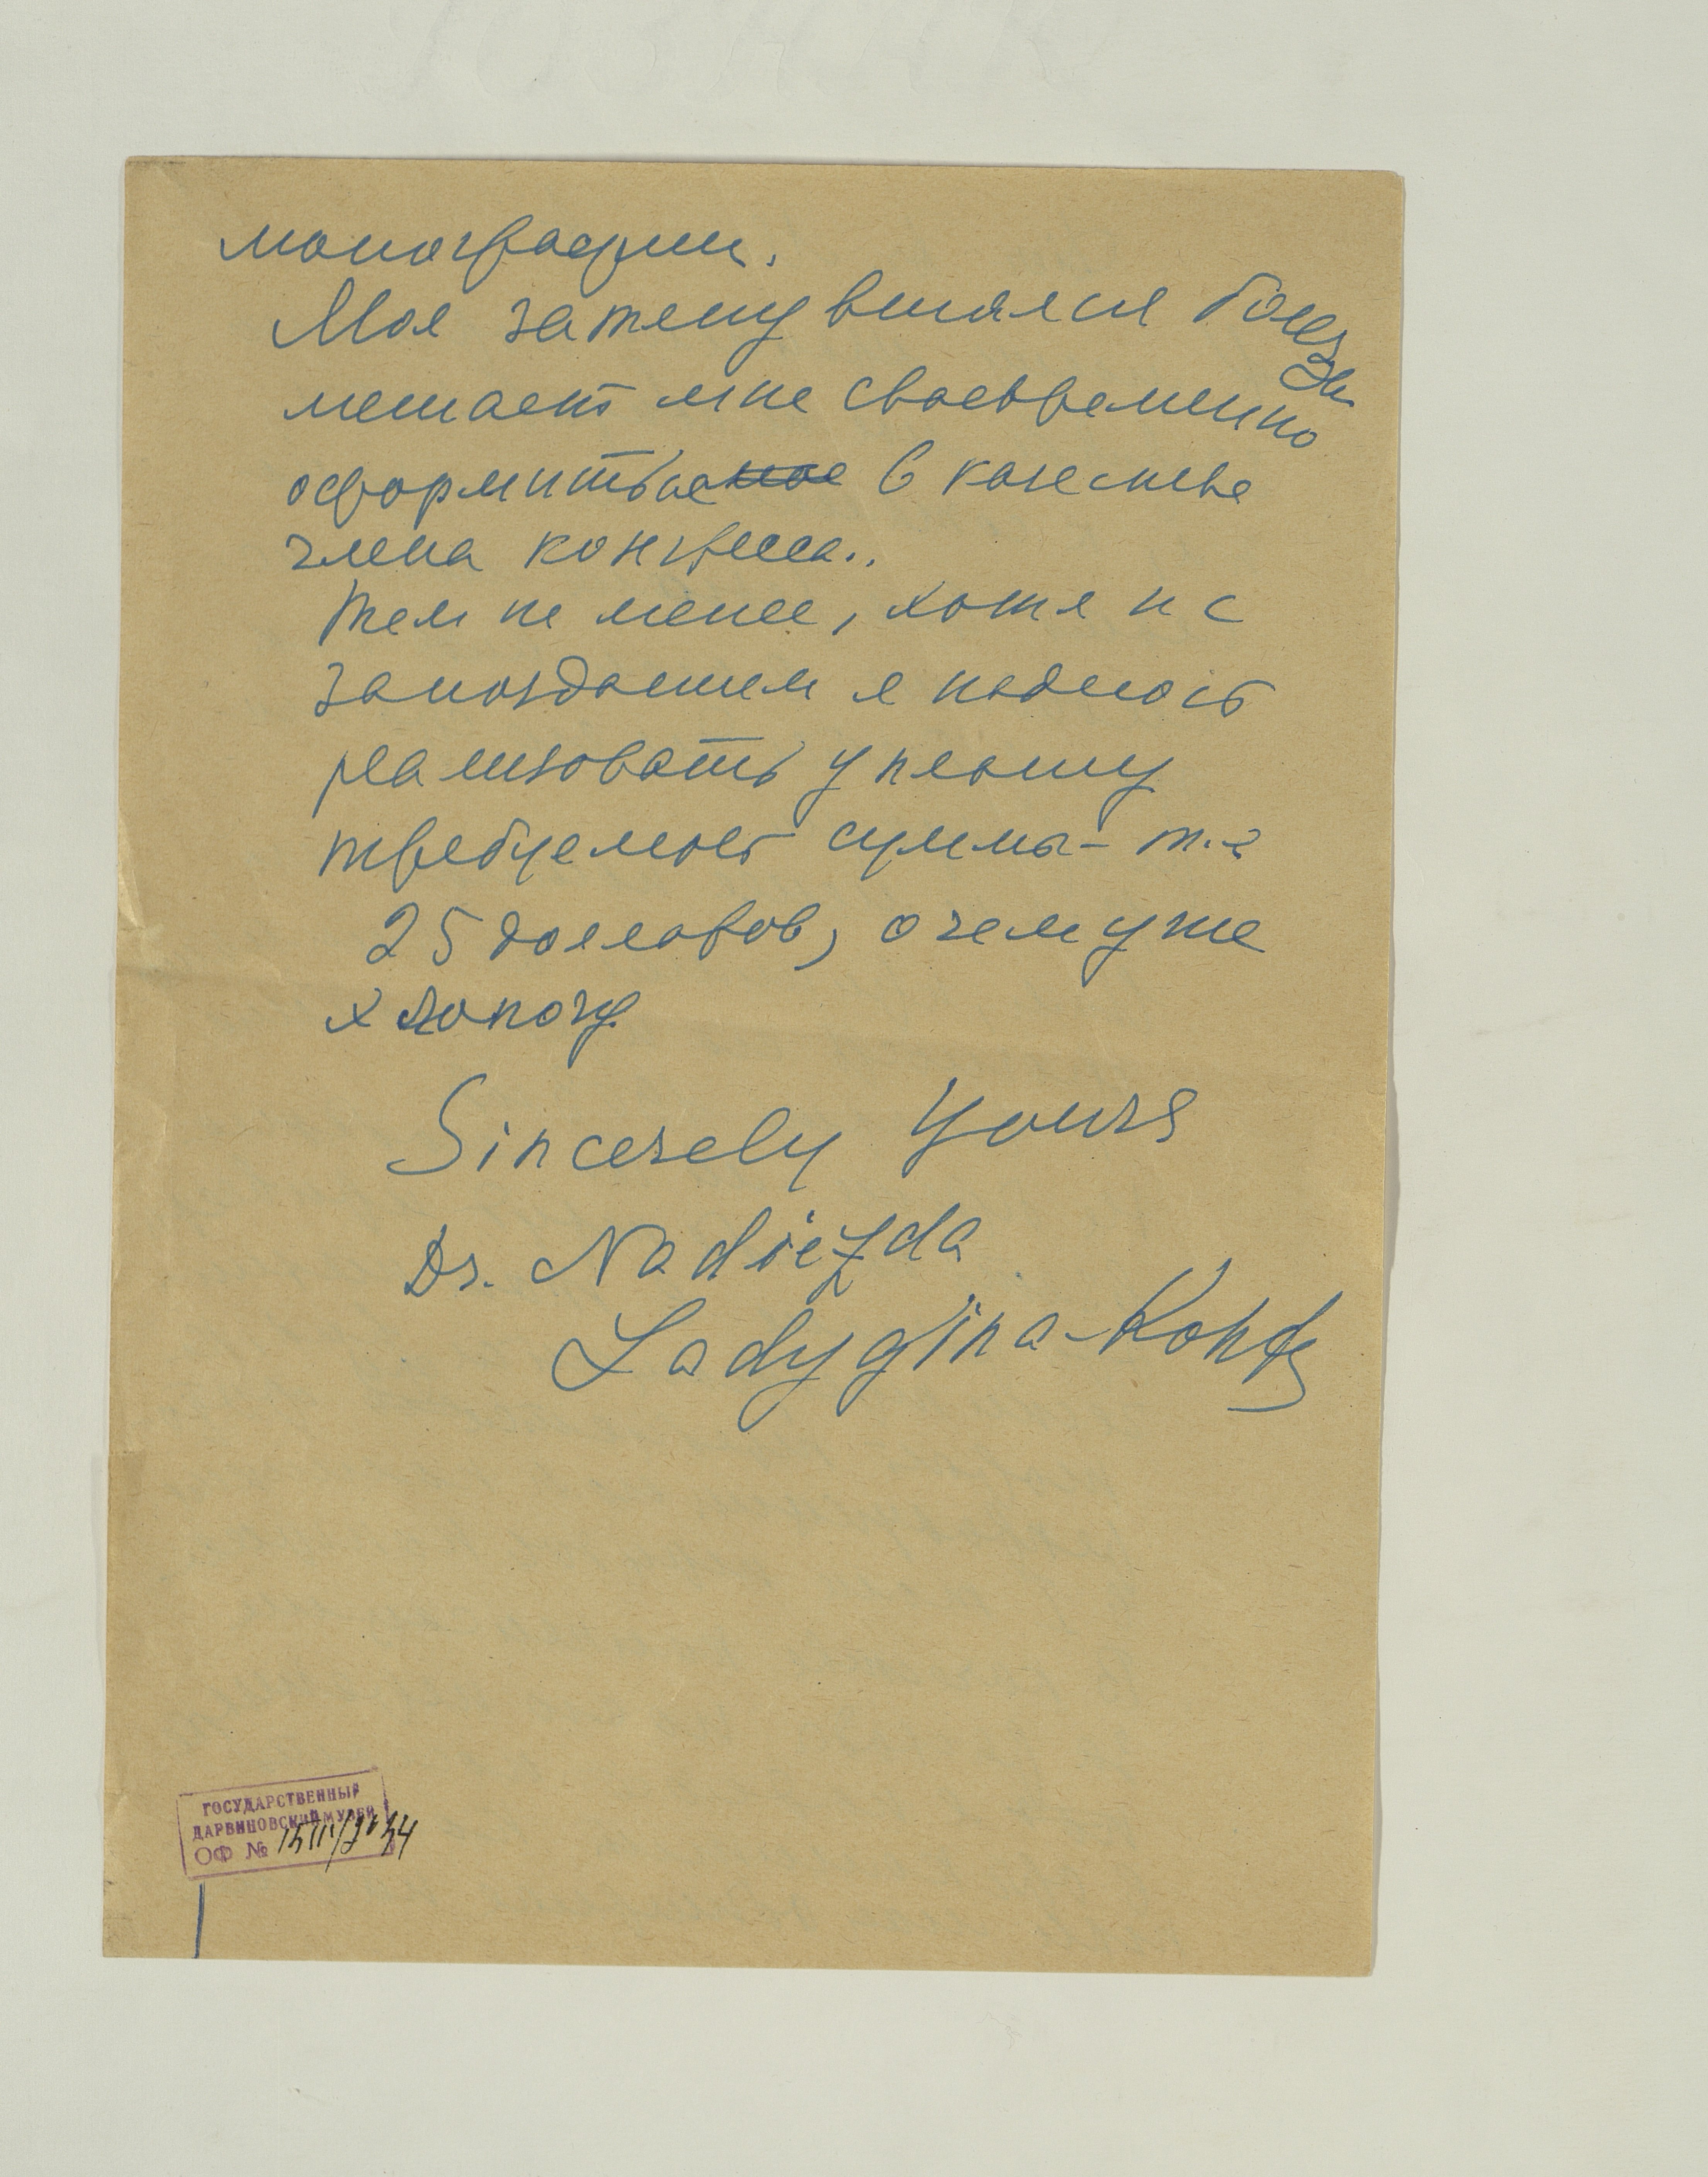 монографии.
Моя затянувшаяся болезнь
мешает мне своевременно
оформиться в качестве
члена конгресса..
Тем не менее, хотя и с
запозданием я надеюсь
реализовать уплату
требуемой суммы – т.е
25 долларов, о чем уже
хлопочу
Sincerely Yours
Dr. Nadiezda
Ladygina-Kohts
ГОСУДАРСТВЕННЫЙ
ДАРВИНОВСКИЙ МУЗЕЙ
ОФ №